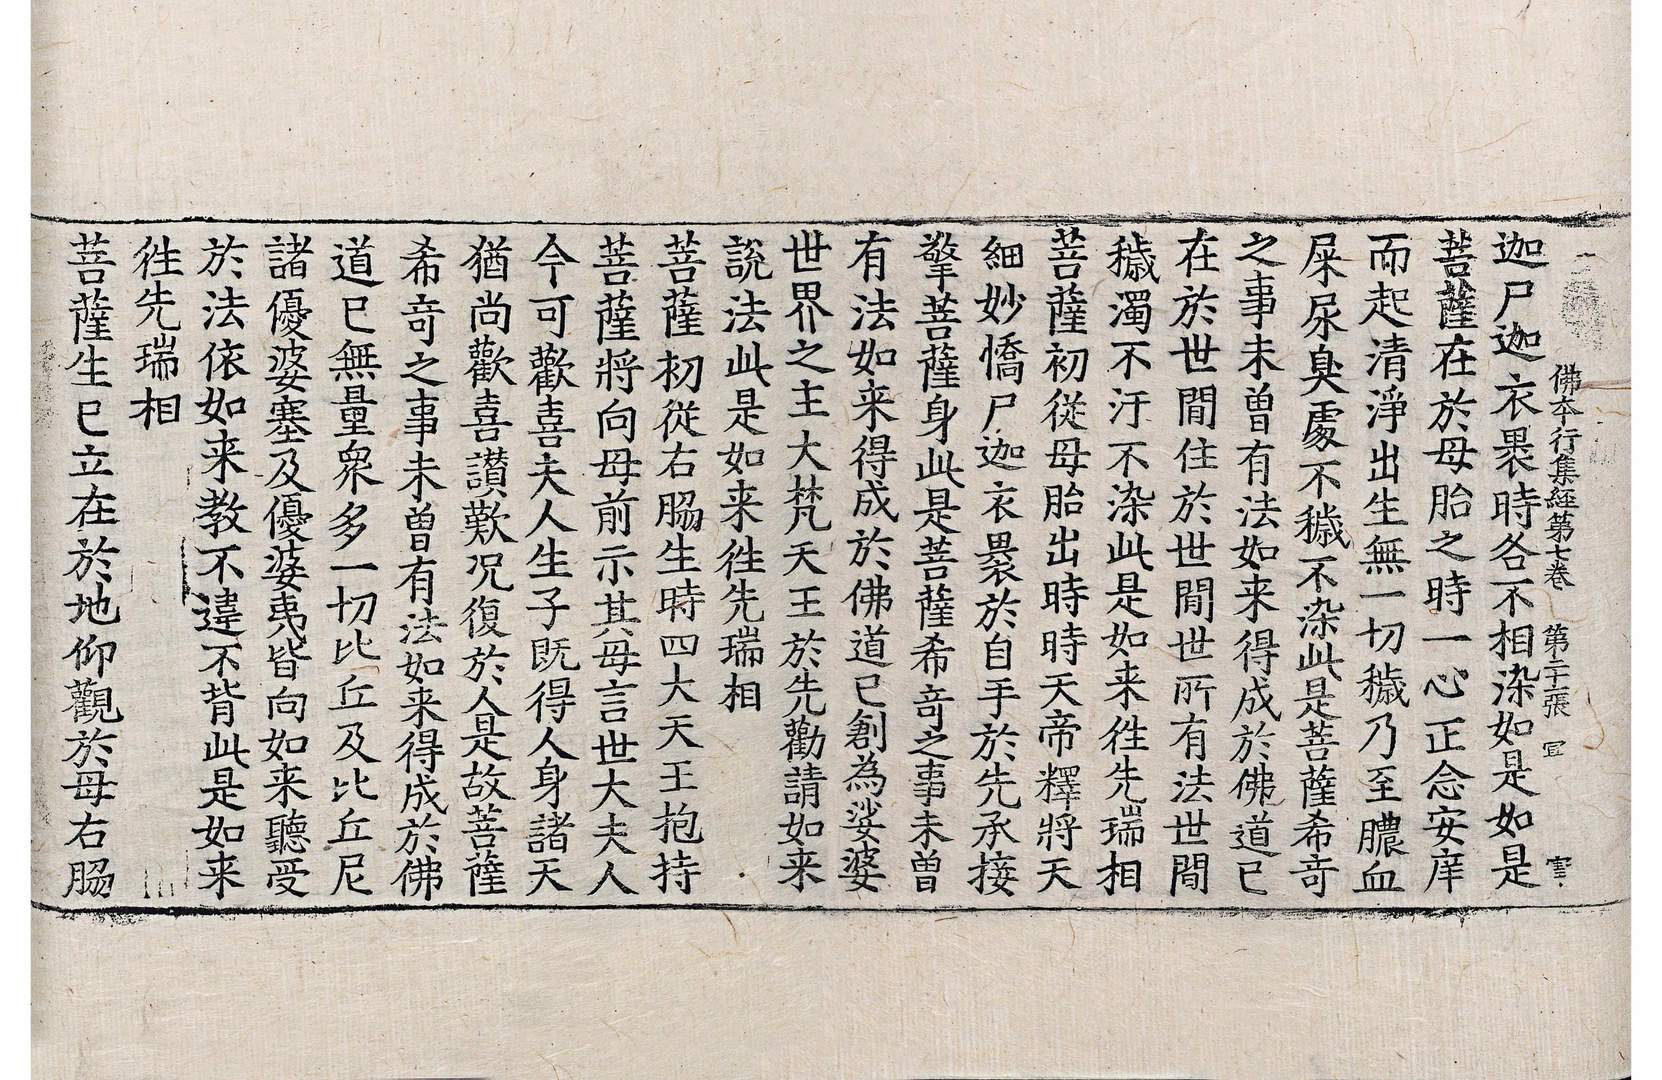 佛本行集經第七卷 第二張 宜 害
迦尸迦衣褁時各不相染如是如是
菩薩在於母胎之時一心正念安庠
而起清淨出生無一切穢乃至膿血
屎尿臭處不穢不染此是菩薩希奇
之事未曾有法如来得成於佛道已
在於世間住於世間世所有法世間
穢濁不汙不染此是如来徃先瑞相
菩薩初從母胎出時時天帝釋將天
細妙憍尸迦衣褁於自手於先承接
擎菩薩身此是菩薩希奇之事未曾
有法如来得成於佛道已創為娑婆
世界之主大梵天王於先勸請如来
說法此是如来徃先瑞相
菩薩初從右脇生時四大天王抱持
菩薩將向母前示其母言世大夫人
今可歡喜夫人生子既得人身諸天
猶尚歡喜讃歎况復於人是故菩薩
希奇之事未曾有法如来得成於佛
道已無量衆多一切比丘及比丘尼
諸優婆塞及優婆夷皆向如来聽受
於法依如来教不違不背此是如来
徃先瑞相
菩薩生已立在於地仰觀於母右脇